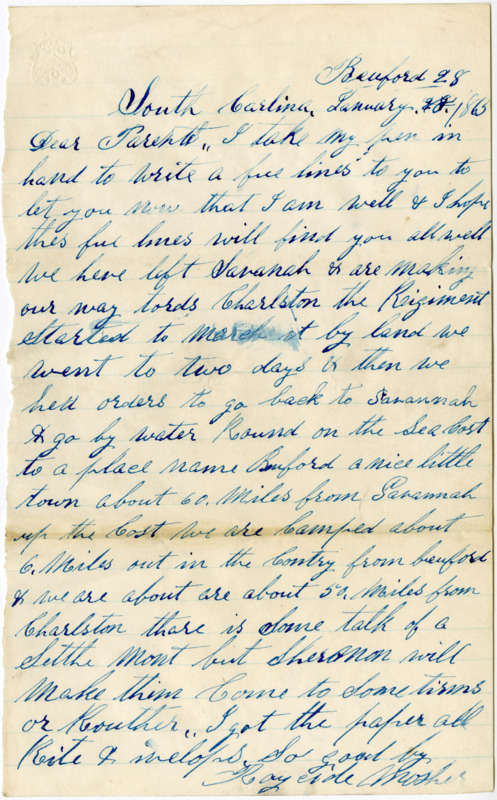 Beuford 28
South Carlina, January, 28, 1865
Dear Parents,, I take my pen in
hand to write a fue lines to you to
let you now that I am well & I hope
thes fue lines will find you all well
we have left Savanah & are making
our way tords Charlston the Reigiment
started to march it by land we
went to two days & then we
hed orders to go back to Savannah
& go by water Round on the Sea Cost
to a place name Buford a nice little
town about 60. Miles from Savannah
up the Cost we are Camped about
6. Miles out in the Contry from beuford
& we are about are about 50. Miles from
Charlston thare is some talk of a
Settle Mont but Shermon will
Make them Come to Some tirms
or Nouther,, I got the paper all
Rite & invelops So good by
Mosher